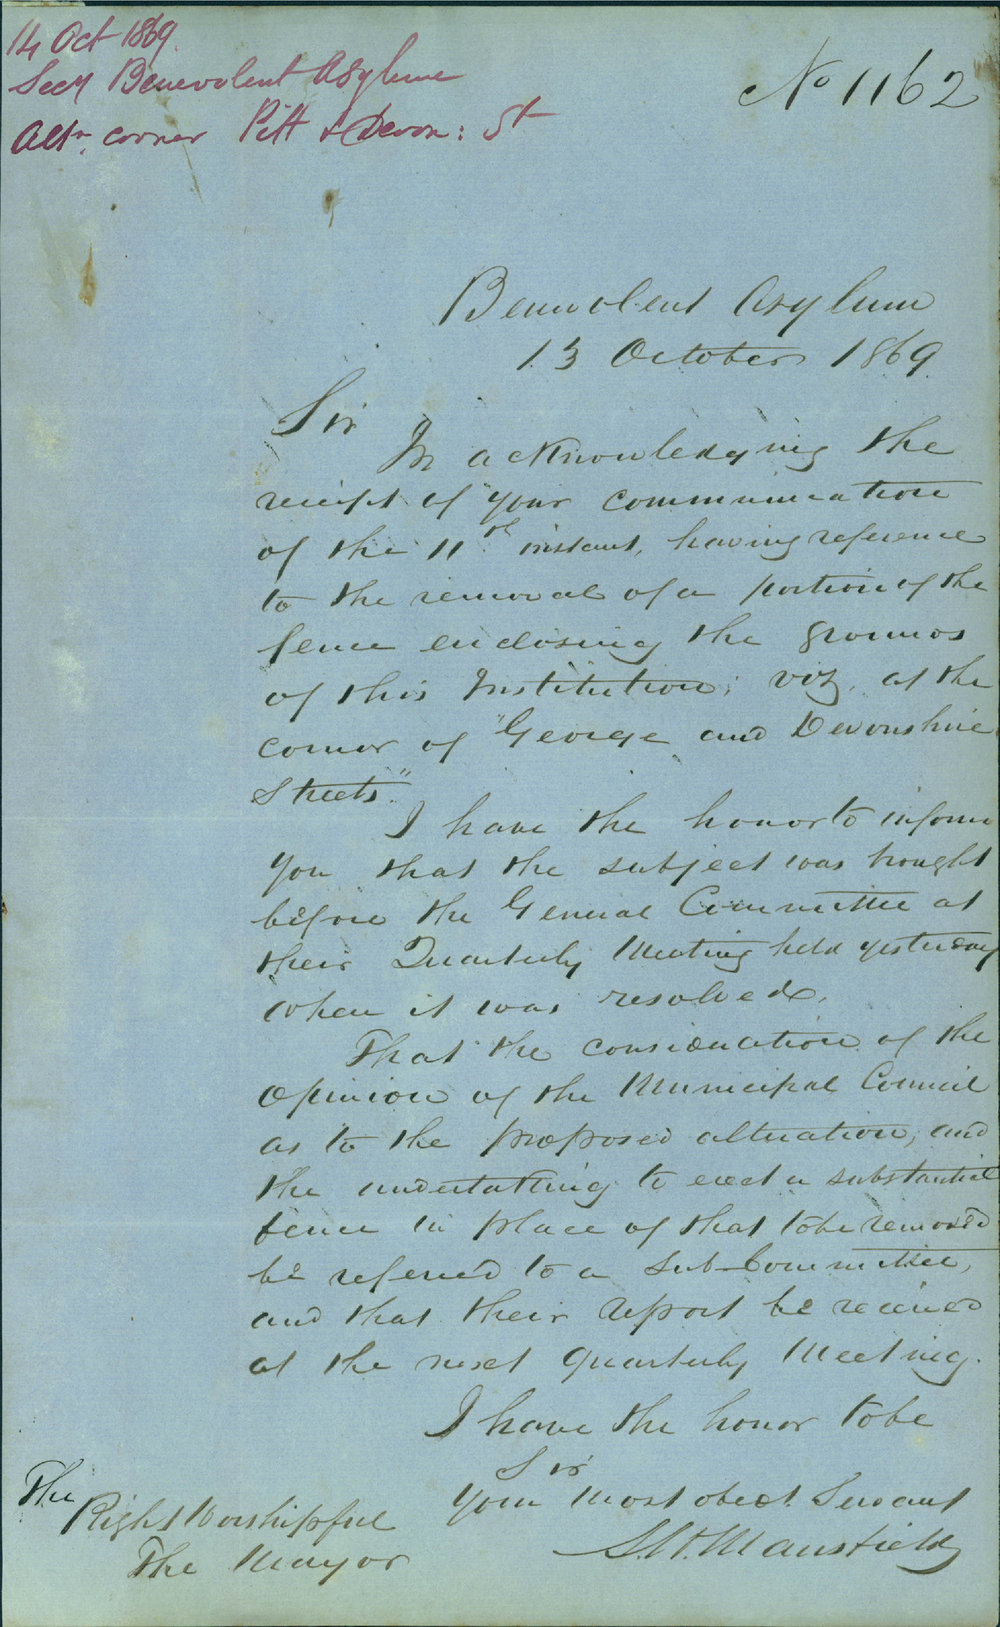 14 Oct 1869.
Secy Benevolent Asylum
Altn. corner Pitt & Devon: St
No 1162
Benevolent Asylum
13 October 1869.
Sir
In acknowledging the
receipt of your communication
of the 11th instant, having reference
to the removal of a portion of the
fence enclosing the grounds
of this Institution; viz, at the
corner of "George and Devonshire
Streets."
I have the honor to inform
you that the subject was brought
before the General Committee at
their Quarterly Meeting held yesterday
when it was resolved,
That the consideration of the
Opinion of the Municipal Council
as to the proposed alteration, and
the undertaking to erect a substantial
fence in place of that to be removed
be referred to a Sub-Committee,
and that their report be received
at the next Quarterly Meeting.
I have the honor to be
Sir
Your most obedt. Servant
Mansfield
The
Right Worshipful
The Mayor